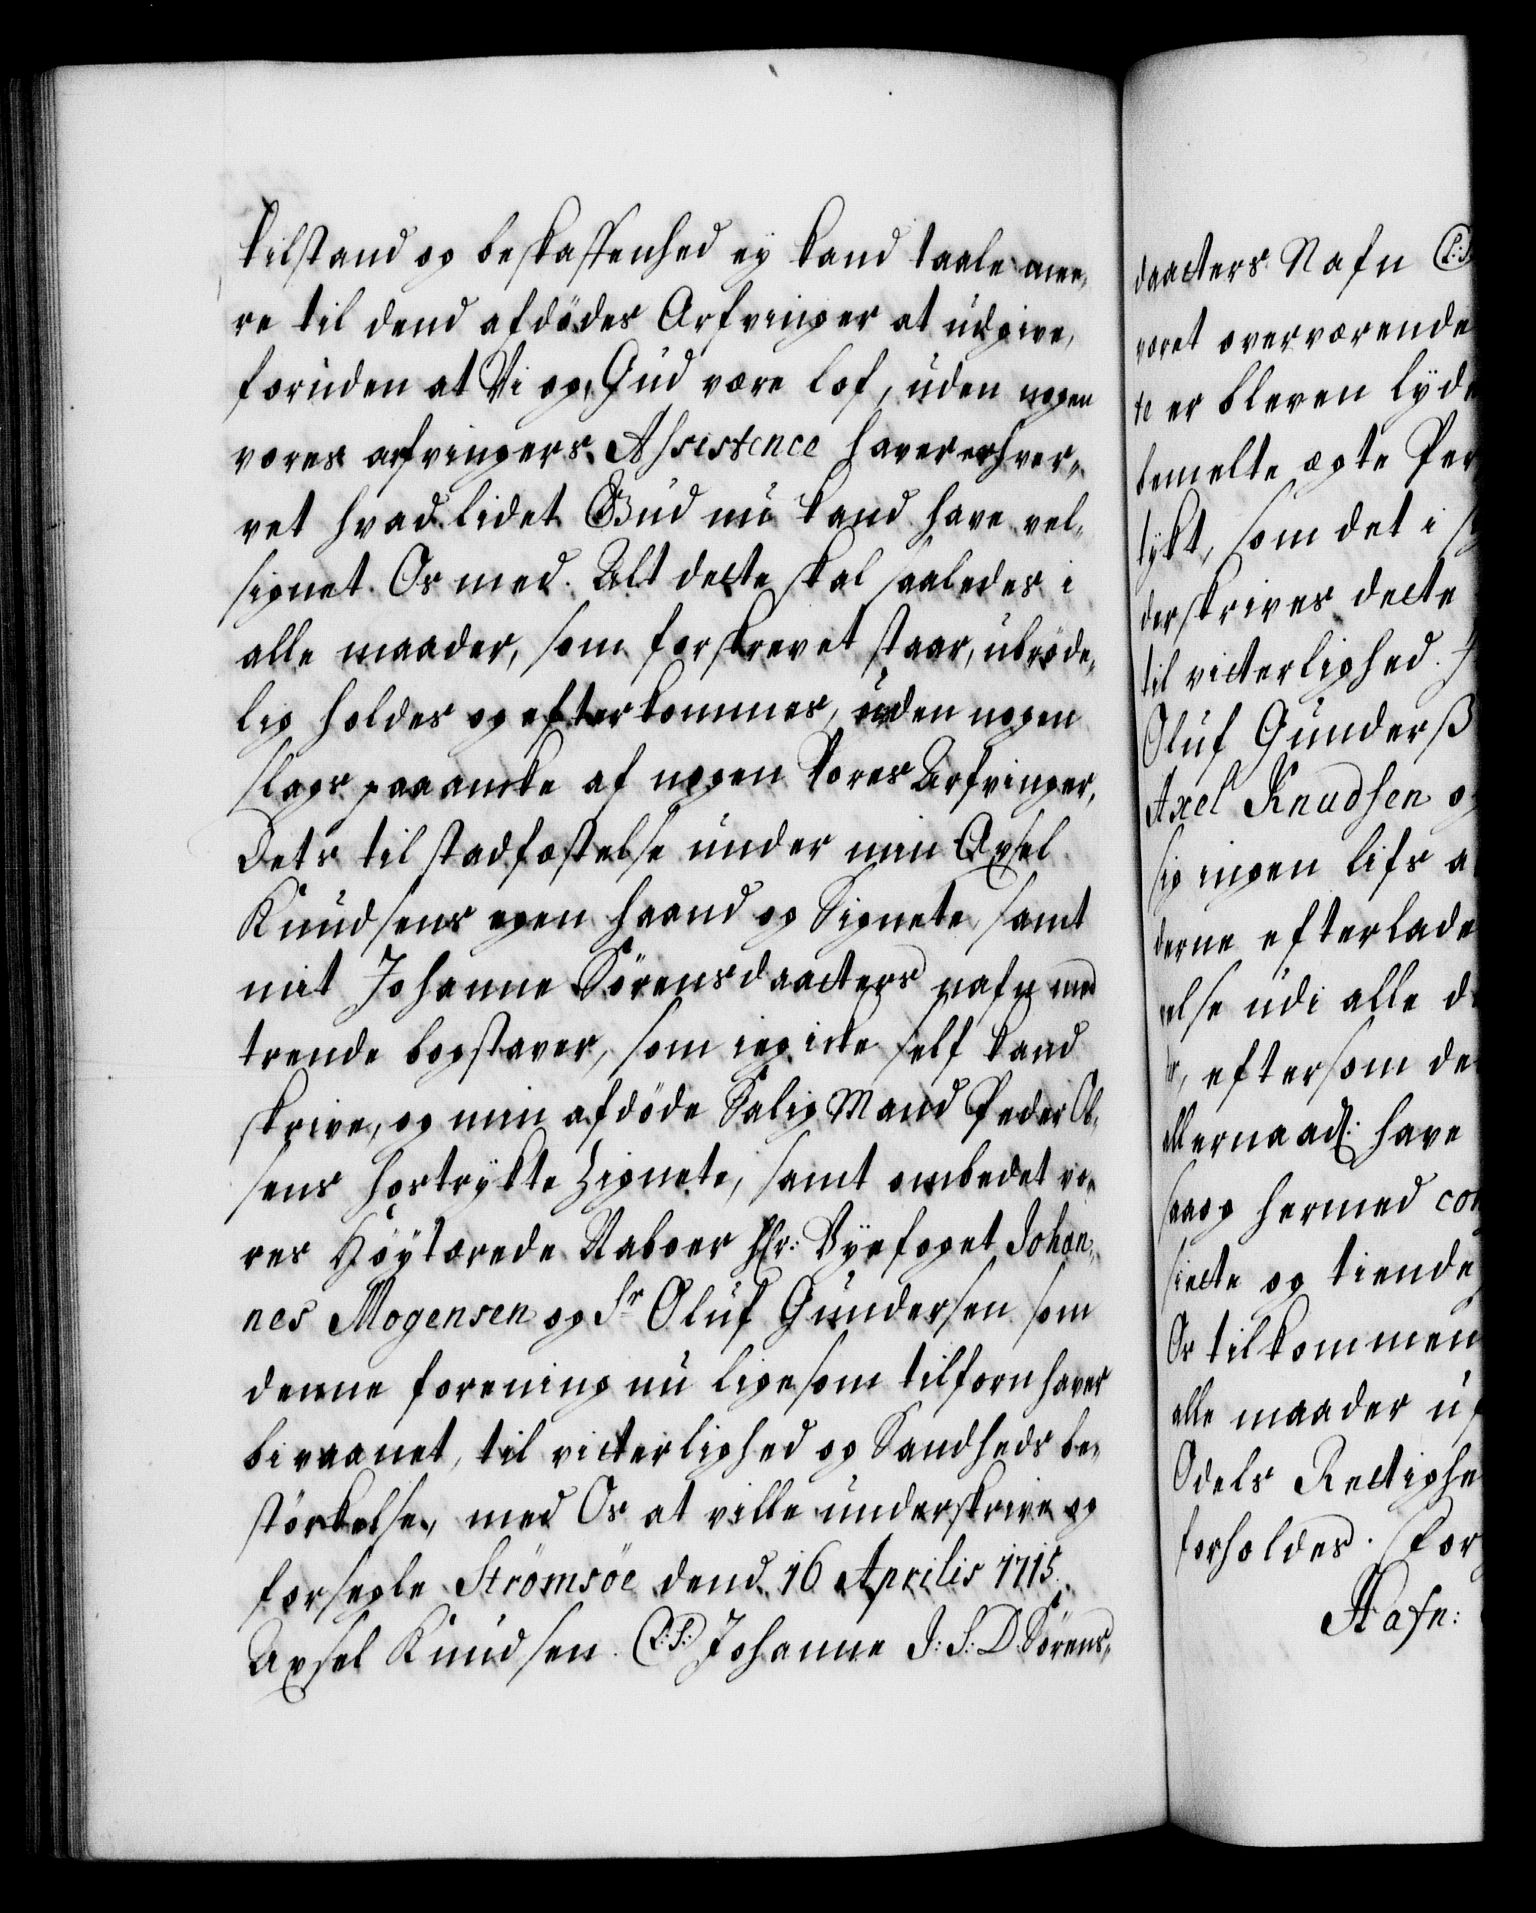 tilstand og beskaffenhed ey kand taale mee-
re til dend afdödes Arfvinger at udgive,
foruden at Vi og, Gud være lof, uden nogen
vores arfvingers Assistence haver erhver-
vet hvad lidet Gud nu kand have vel-
signet Os med. Alt dette skal saaledes i
alle maader, som forskrevet staar, ubröde-
lig holdes og efterkommes, uden nogen
slags paaancke af nogen Vores Arfvinger,
Dets til stadfæstelse under min Axsel
Knudsens egen haand og Signete, samt
mit Johanne Sörensdaatters nafn med
trende bogstaver, som ieg icke self kand
skrive, og min afdöde Salig Mand Peder Ol-
sens hostrykte Zignete, samt ombedet vo-
res Höytærede Naboer Hr: Byefoget Johan-
nes Mogensen og Sr Oluf Gundersen som
denne forening nu ligesom tilforn haver
bivaanet, til vitterlighed og Sandheds be-
störkelse, med Os at ville underskrive og
forsegle Strömsöe dend 16 Aprilis 1715.
Axsel Knudsen. (L:S:) Johanne J:S:D Sörens-
daatters Nafn (L:S
været overværende
te er bleven lyd
bemelte ægte Per
tykt, som det i
derskrives dette
til vitterlighed.
Oluf Gunderß
Axel Knudsen og
sig ingen lifs a
derne efterlade
else udi alle d
, eftersom de
allernaadl: have
saa og hermed con
siette og tiende
Os tilkommen
alle maader u
Odels Rettighe
forholdes. for
Hafn: